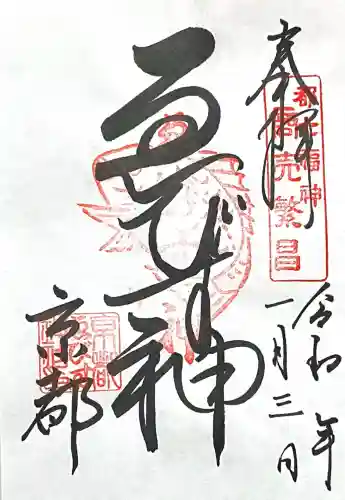 奉拝
都七福神
商売繁昌
令和 年
一月三日
ゑびす神
京都